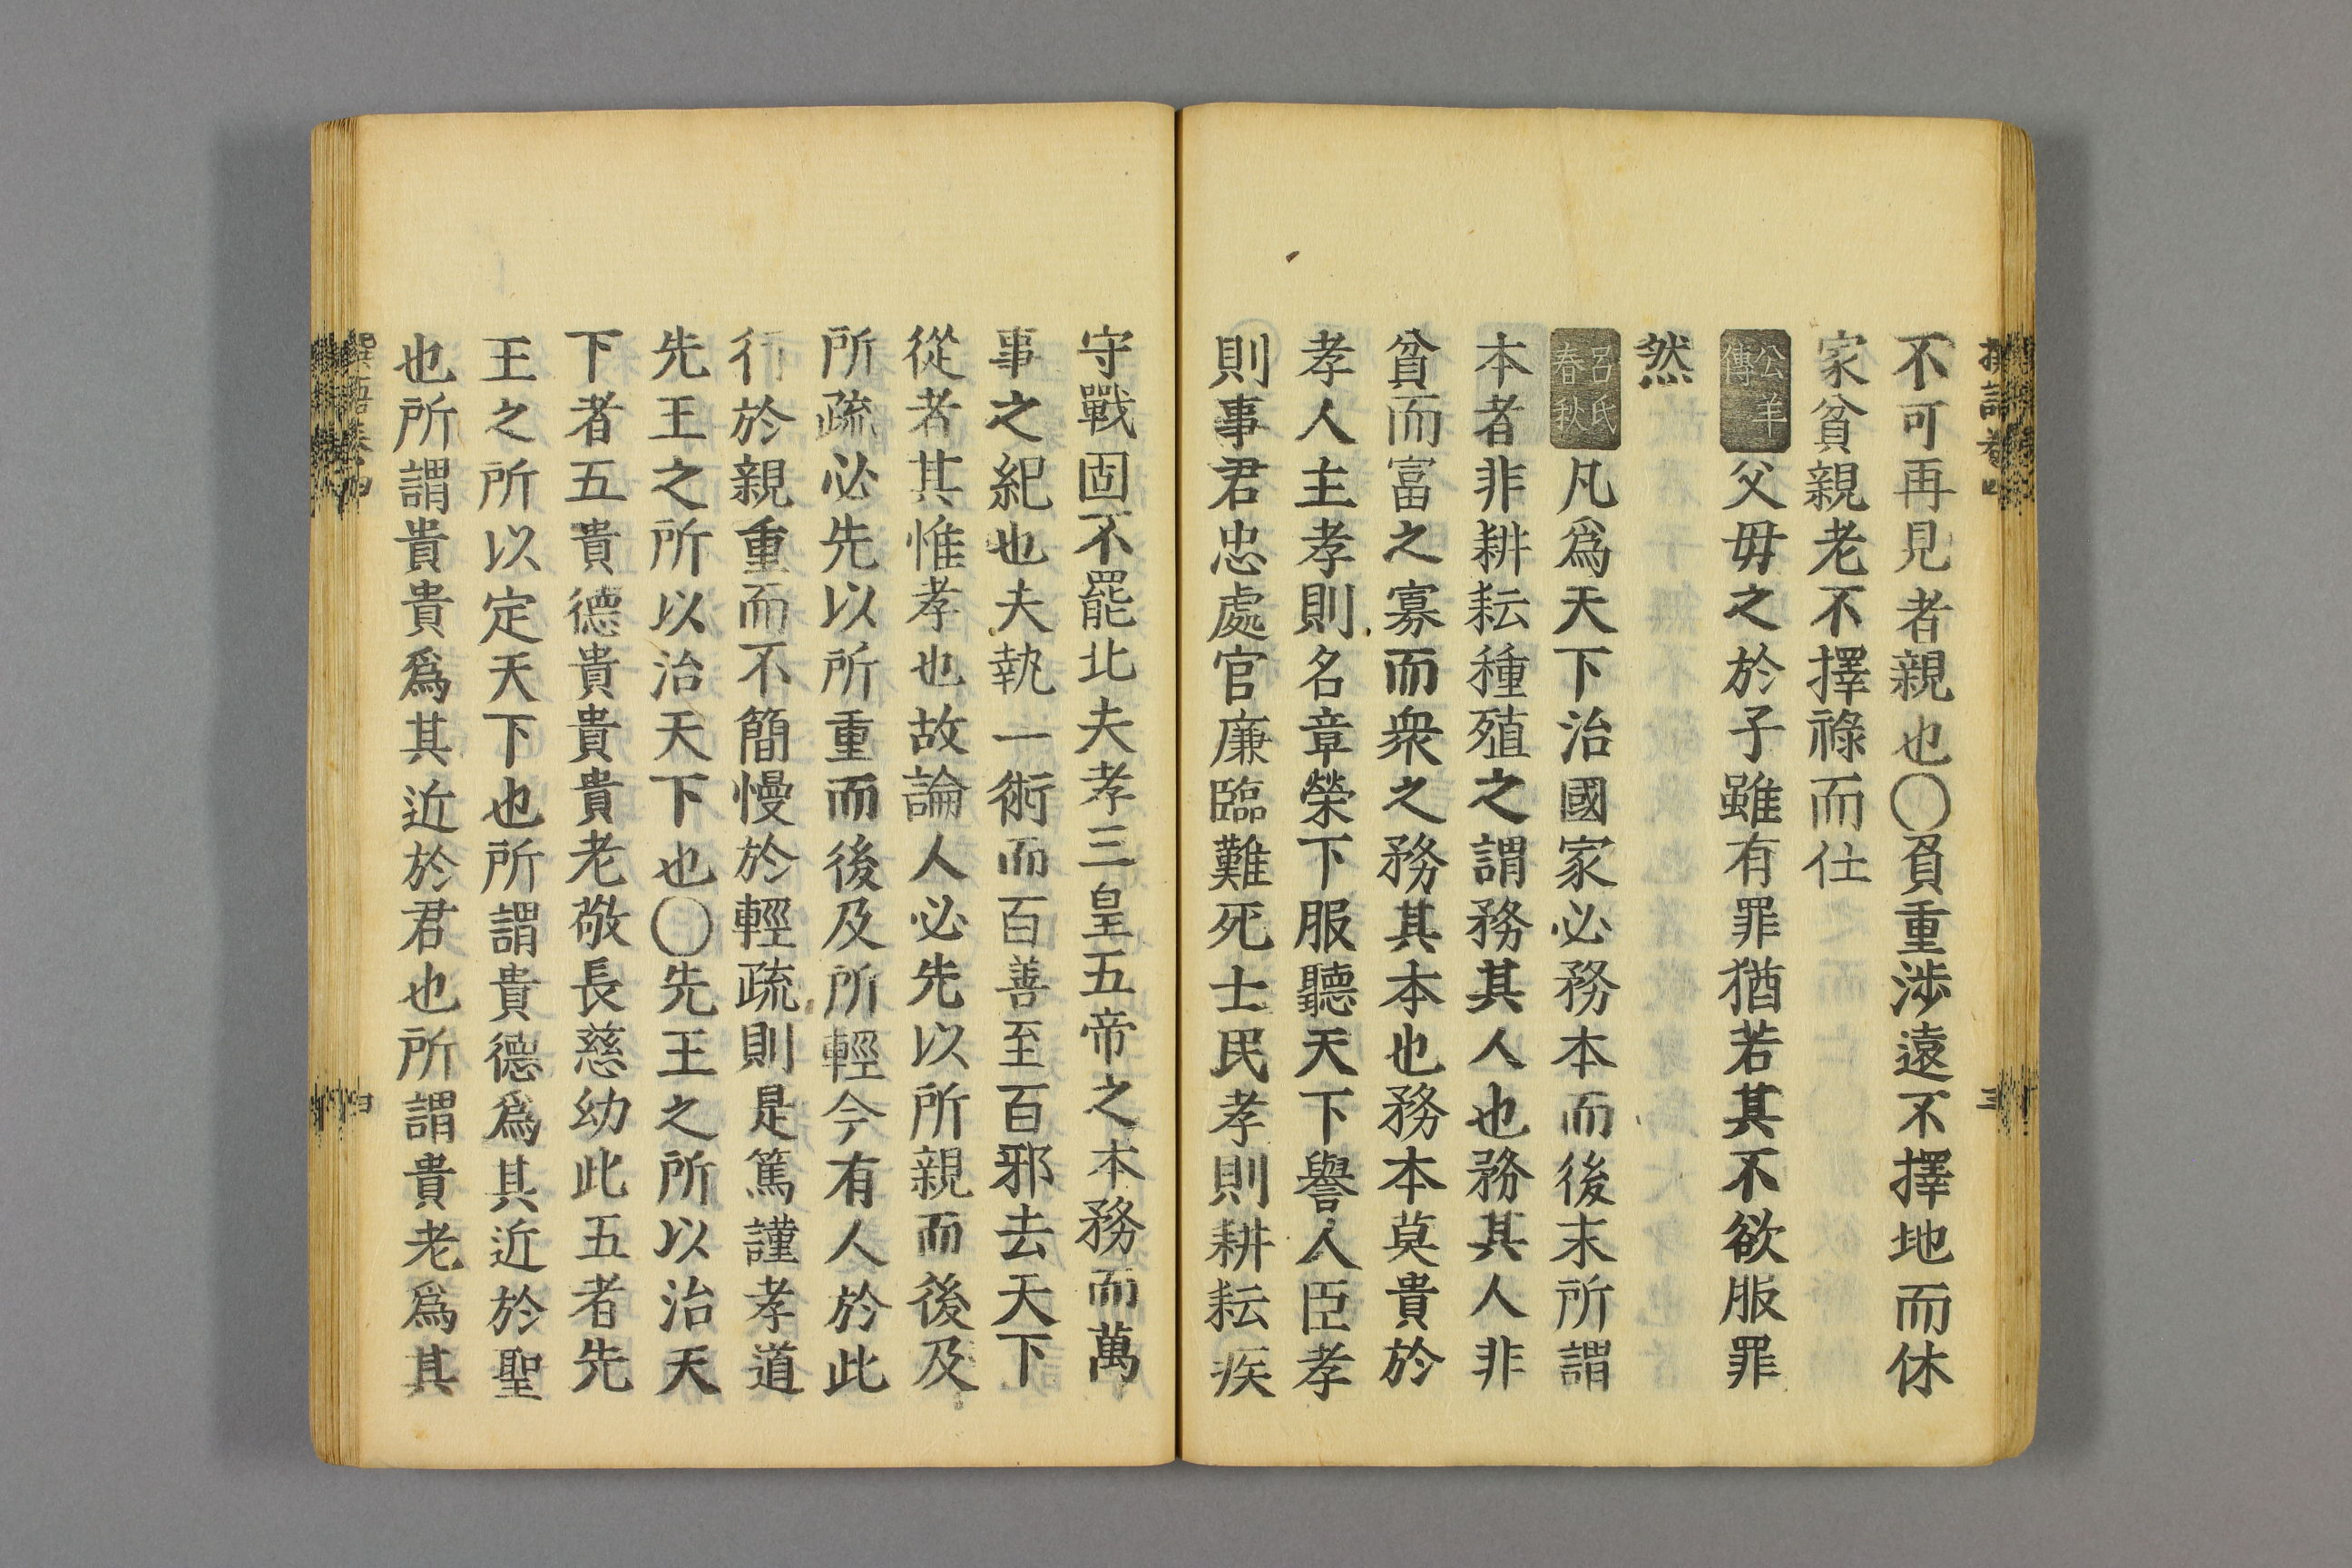 不可再見者親也〇負重涉遠不擇地而休
家貧親老不擇祿而仕
公羊傳父毋之於子雖有罪猶若其不欲服罪
然
呂氏春秋凡爲天下治國家必務本而後末所謂
本者非耕耘種殖之謂務其人也務其人非
貧而富之寡而衆之務其本也務本莫貴於
孝人主孝則名章榮下服聽天下譽人臣孝
則事君忠處官廉臨難死士民孝則耕耘疾
守戰固不罷北夫孝三皇五帝之本務而萬
事之紀也夫執一術而百善至百邪去天下
從者其惟孝也故論人必先以所親而後及
所疏必先以所重而後及所輕今有人於此
行於親重而不簡慢於輕疏則是篤謹孝道
先王之所以治天下也〇先王之所以治天
下者五貴德貴貴貴老敬長慈幼此五者先
王之所以定天下也所謂貴德爲其近於聖
也所謂貴貴爲其近於君也所謂貴老爲其